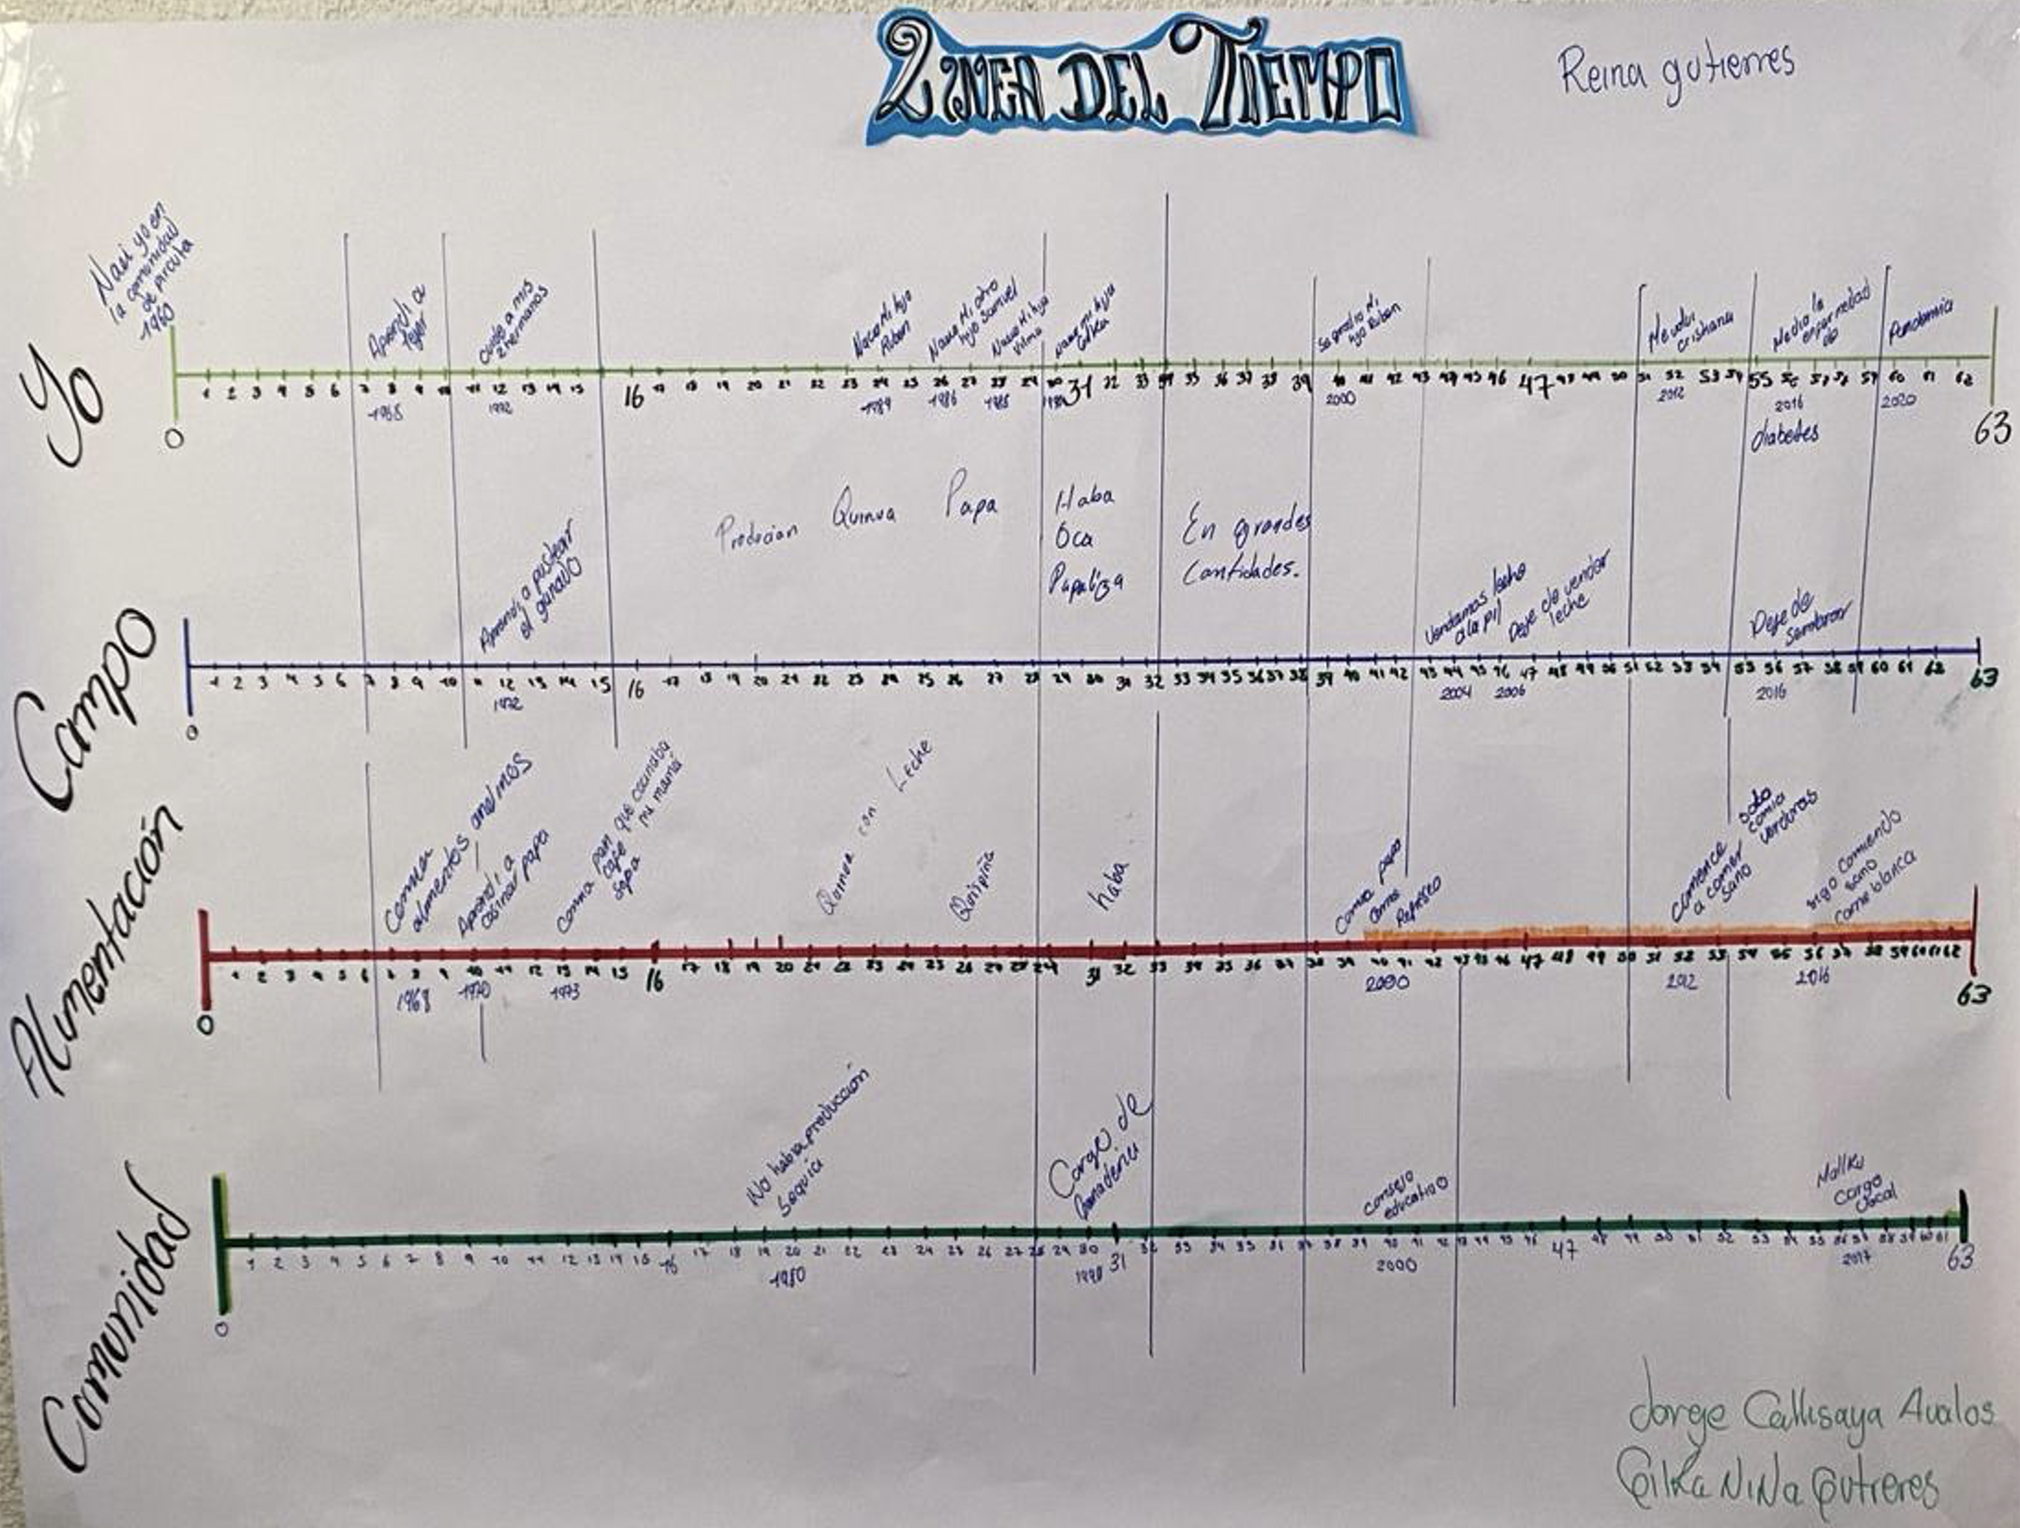 LINEA DEL TIEMPO
Reina gutierres
Yo
Nasi yo en
la comunidad
de pircuta
1960
Aprendi a
tejer
Cuide a mis
2 hermanos
Nacio Mi hijo
Ruben
Nacio Mi otro
hijo Samuel
Nacio Mi hija
Vilma
Nacio mi hija
Gilka
Se gradio Mi
hijo Ruben
Me volvi
cristiana
Me dio la
enfermedad
de
Pandemia
0
1 2 3 4 5 6 7 8 9 10 11 12 13 14 15 16 17 18 19 20 21 22 23 24 25 26 27 28 29 30 31 32 33 34 35 36 37 38 39 40 41 42 43 44 45 46 47 48 49 50 51 52 53 54 55 56 57 58 59 60 61 62
63
1968
1972
1984
1986
1988
1990
2000
2012
2016
diabetes
2020
Campo
Aprendi a pastear
el ganado
Producian
Quinua
Papa
Haba
Oca
Papaliza
En grandes
Cantidades.
Vendamos leche
a la pil
Deje de vender
leche
Deje de
Sembrar
0
1 2 3 4 5 6 7 8 9 10 11 12 13 14 15 16 17 18 19 20 21 22 23 24 25 26 27 28 29 30 31 32 33 34 35 36 37 38 39 40 41 42 43 44 45 46 47 48 49 50 51 52 53 54 55 56 57 58 59 60 61 62 63
1972
2004
2006
2016
Alimentación
Comian
alimentos andinos
Aprendi a
cosinar papa
Comia pan que cocinaba
cafe mi mamá
sopa
Quinua con Leche
Quispiña
haba
Comia papa
carne
Refresco
Comence
a comer
sano
solo
comia
verduras
sigo Comiendo
sano
carne blanca
0
1 2 3 4 5 6 7 8 9 10 11 12 13 14 15 16 17 18 19 20 21 22 23 24 25 26 27 28 29 31 32 33 34 35 36 37 38 39 40 41 42 43 45 46 47 48 49 50 51 52 53 54 55 56 57 58 59 60 61 62
63
1968
1970
1973
2000
2012
2016
Comunidad
No habia producción
Sequia
Cargo de
Ganaderia
Consejo
educativo
Mallku
Cargo
Local
0
1 2 3 4 5 6 7 8 9 10 11 12 13 14 15 16 17 18 19 20 21 22 23 24 25 26 27 28 29 30 31 32 33 34 35 36 37 38 39 40 41 42 43 44 45 46 47 48 49 50 51 52 53 54 55 56 57 58 59 60 61
63
1980
1990
2000
2017
Jorge Callisaya Avalos
Gilka NiNa Gutreres